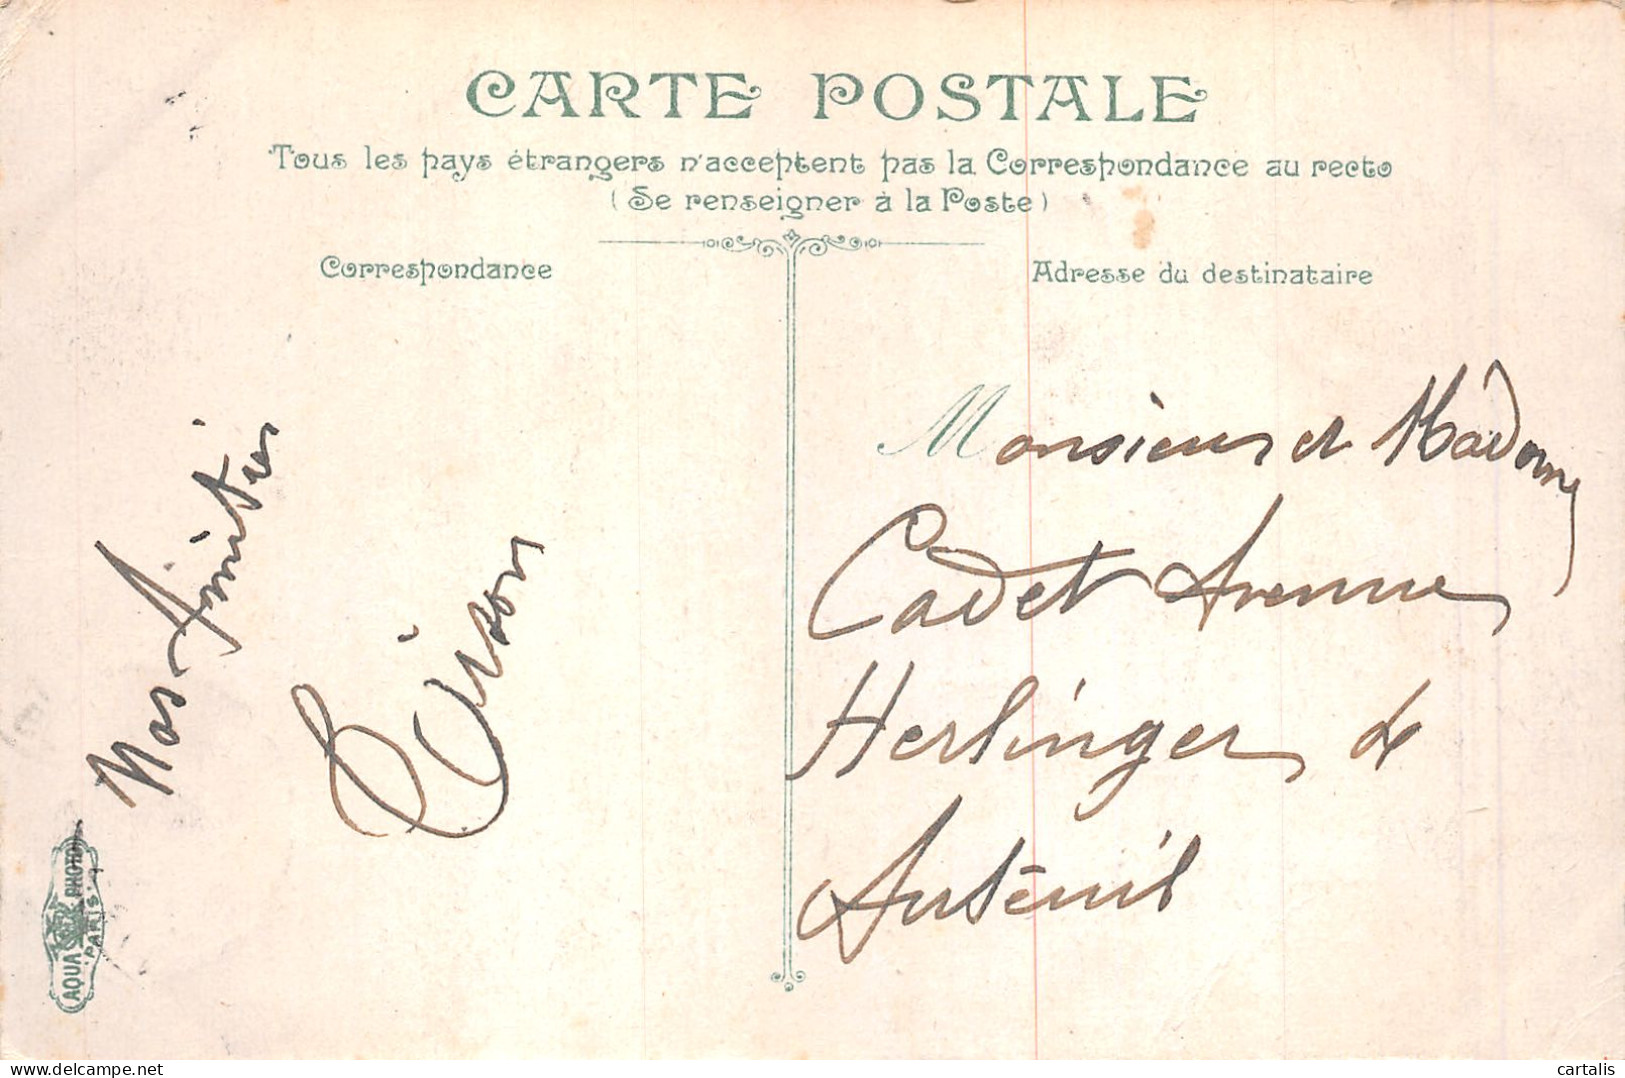 CARTE POSTALE
Tous les pays étrangers n'acceptent pas la Correspondance au recto
(Se renseigner à la Poste)
Correspondance
Adresse du destinataire
Nos Amitiés
Monsieur et Madame
Cadet Avenue
Herlinger de
Auteuil
AQUA PHOTO
PARIS
cartalis
www.delcampe.net